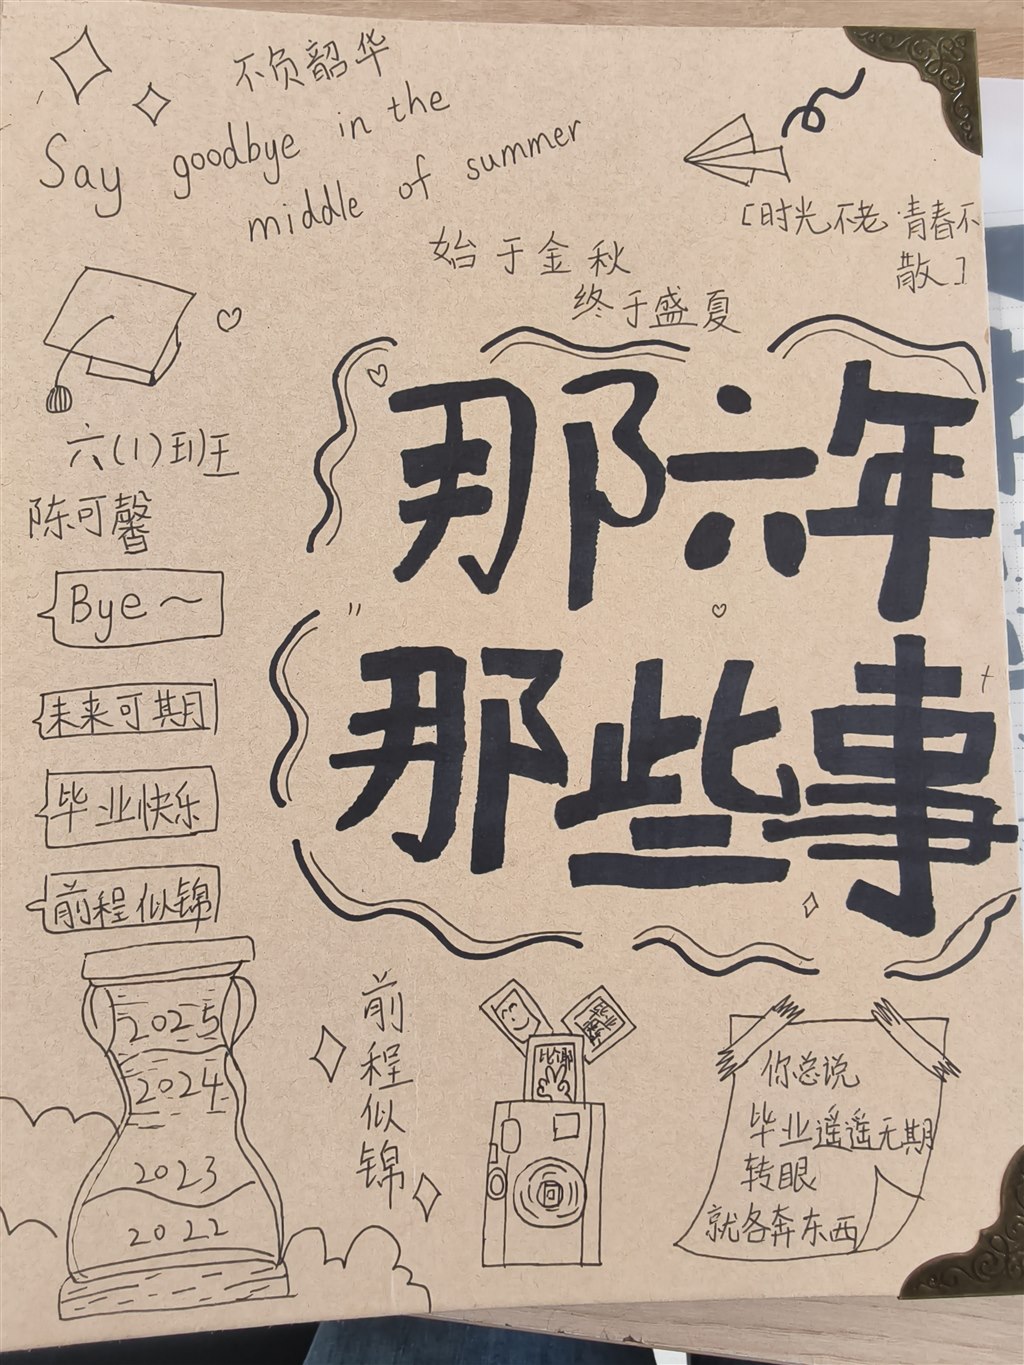 不负韶华
Say goodbye in the
middle of summer
始于金秋
终于盛夏
[时光不老·青春不
散]
六(1)班
陈可馨
那六年
那些事
Bye~
未来可期
毕业快乐
前程似锦
2025
2024
2023
2022
前程似锦
比耶
你总说
毕业遥遥无期
转眼
就各奔东西